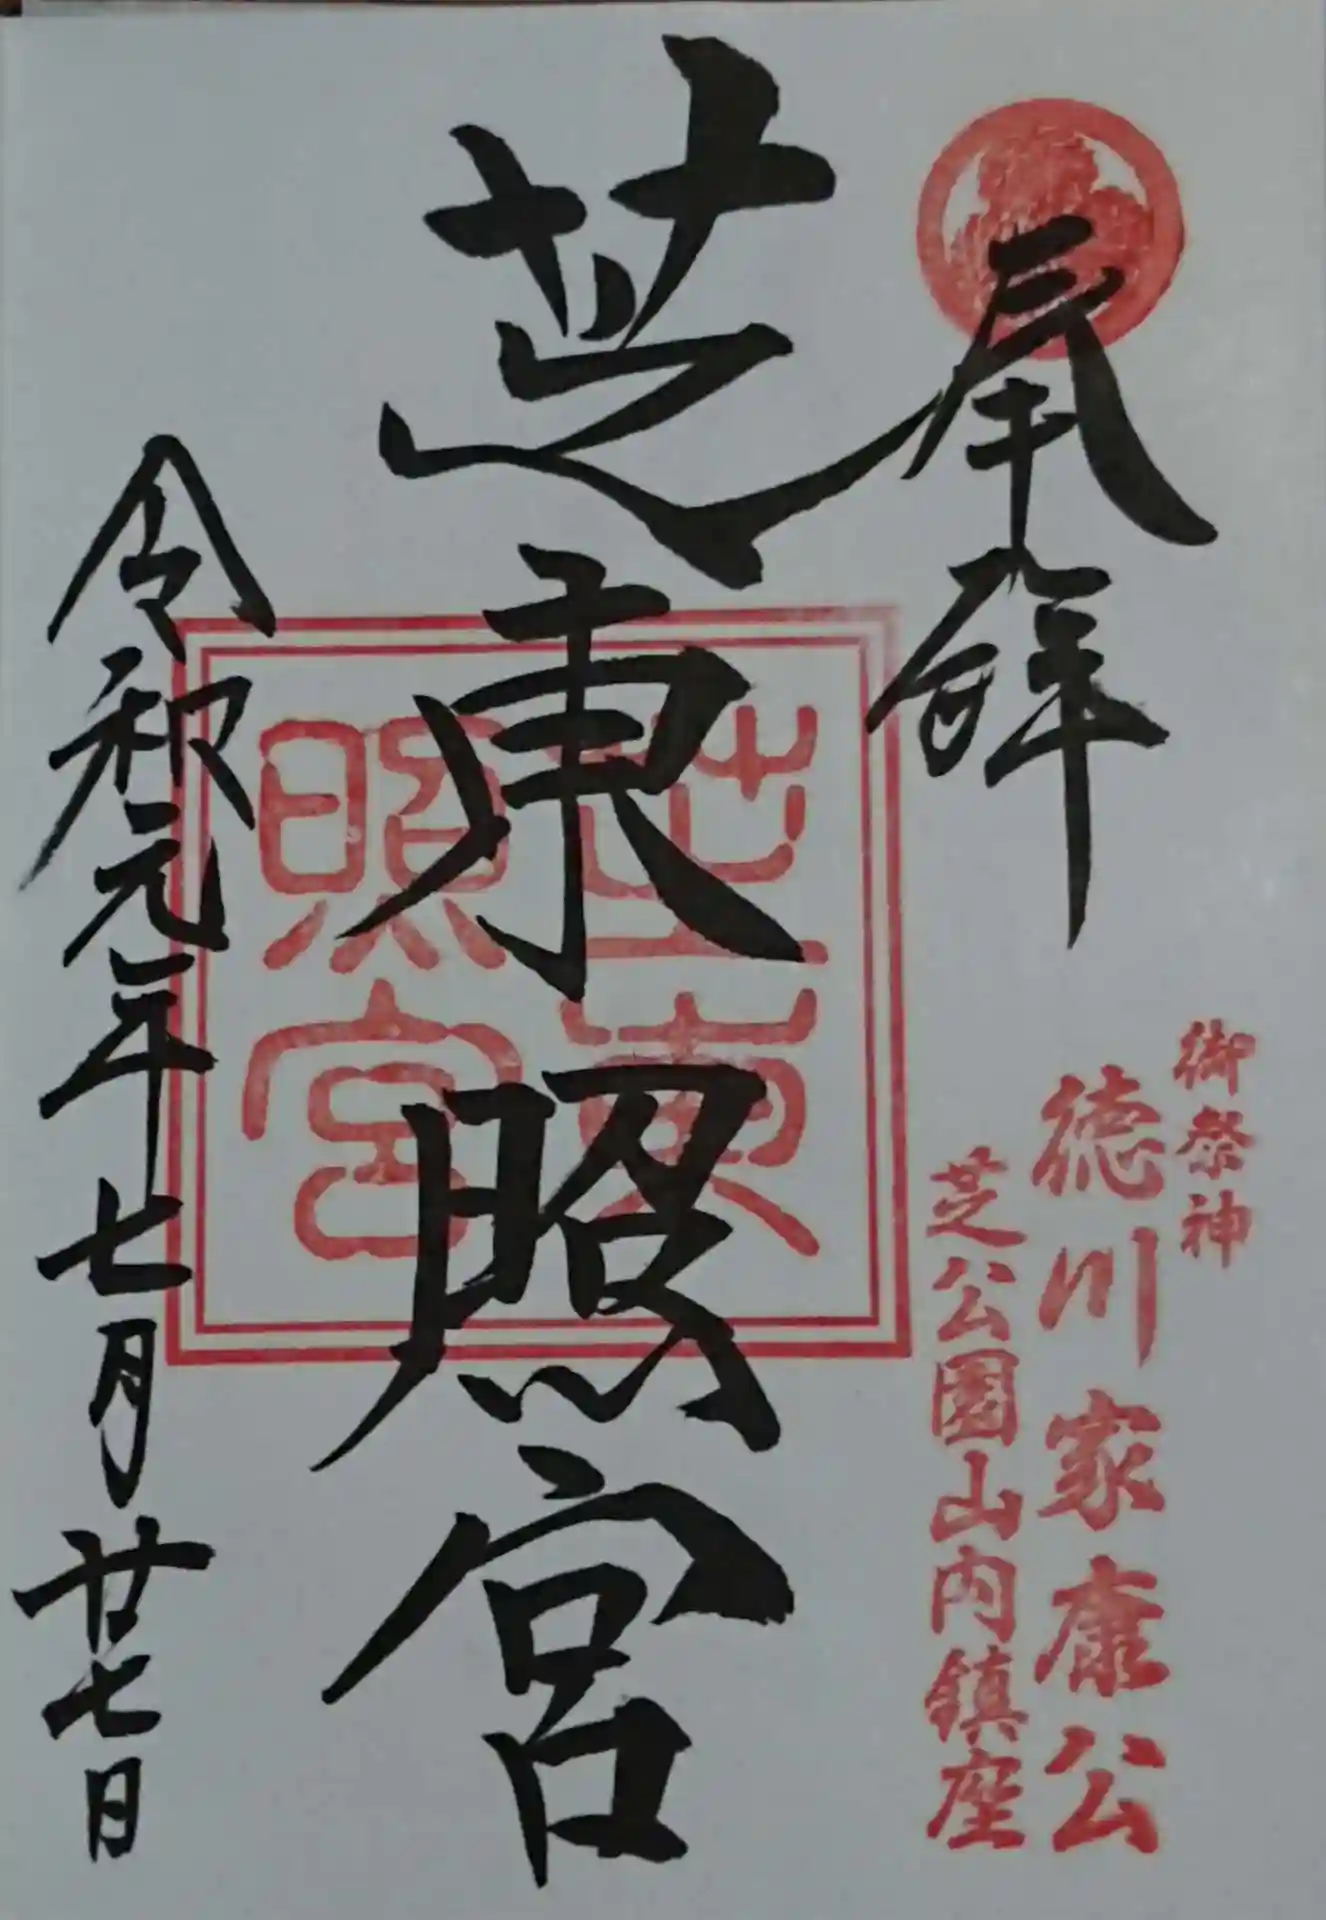 奉拝
御祭神
徳川家康公
芝公園山内鎮座
芝東照宮
芝東
照宮
令和元年七月廿七日